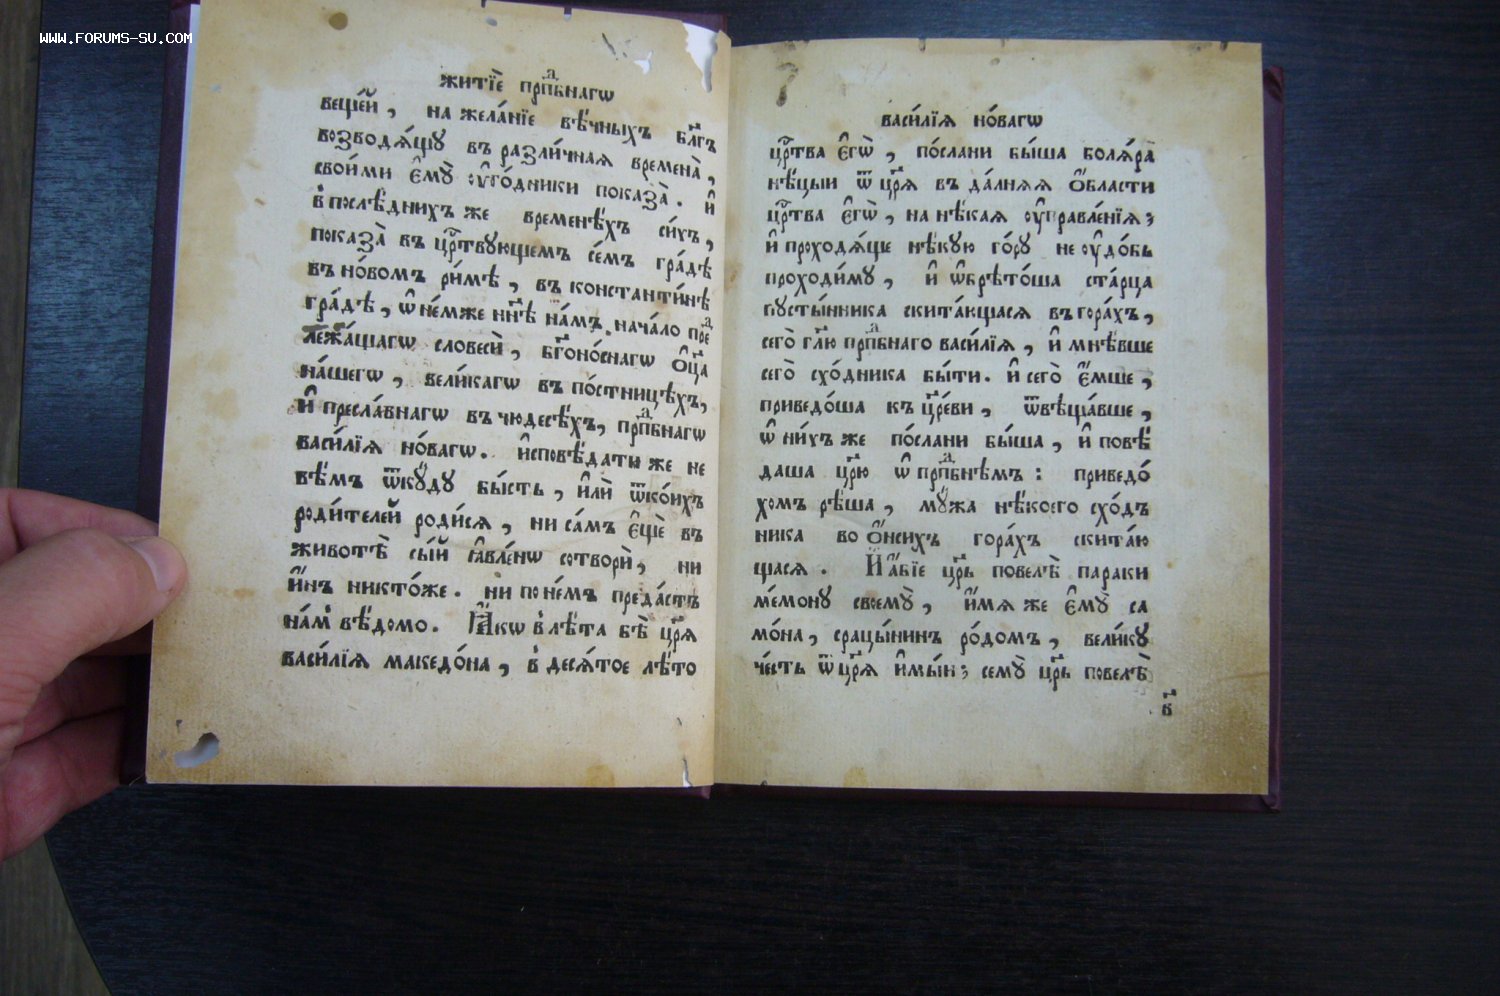 WWW.FORUMS-SU.COM
житїѐ прпⷣбнагѡ
веще́й, на жела́нїе вѣ́чныхъ бл҃гъ
возводѧ́щꙋ въ разли́чнаѧ времена̀,
свои́ми є҆мꙋ̀ ᲂу҆го́дники показа̀. и҆
в̾послѣ́днихъ же временѣ́хъ си́хъ,
показа̀ въ црⷭ҇твующемъ се́мъ гра́дѣ
въ но́вомъ ри́мѣ, въ константи́нѣ
гра́дѣ, ѡ҆ не́мже нн҃ѣ на́мъ нача́ло преⷣ
лежа́щагѡ словесѝ, бг҃оно́снагѡ ѻ҆ц҃а
на́шегѡ, вели́кагѡ въ по́стницѣхъ,
и҆ пресла́внагѡ въ чюдесѣ́хъ, прпⷣбнагѡ
васи́лїѧ но́вагѡ. и҆сповѣ́дати же не
вѣ́мъ ѿкꙋ́дꙋ бы́сть, и҆лѝ ѿко́ихъ
роди́телей роди́сѧ, ни са́мъ є҆щѐ въ
животѣ̀ сы́й ꙗ҆вле́нѡ сотворѝ, ни
и҆́нъ никто́же. ни по не́мъ преда́стъ
на́м̾ вѣ́домо. Ꙗ҆́кѡ в̾лѣ́та бѣ̀ цр҃ѧ
васи́лїѧ македо́на, в̾ десѧ́тое лѣ́то
васи́лїѧ но́вагѡ
црⷭ҇тва є҆гѡ̀, по́слани бы́ша болѧ́ра
нѣ́цыи ѿ цр҃ѧ въ да́лнѧѧ ѻ҆́бласти
црⷭ҇тва є҆гѡ̀, на нѣ́каѧ ᲂу҆правле́нїѧ;
и҆ проходѧ́ще нѣ́кую го́рꙋ не ᲂу҆до́бь
проходи́мꙋ, и҆ ѡ҆брѣто́ша ста́рца
пꙋсты́нника скита́ющасѧ въ гора́хъ,
сего̀ гл҃ю прпⷣбнаго васи́лїѧ, и҆ мнѣ́вше
сего̀ схо́дника бы́ти. и҆ сего̀ є҆́мше,
приведо́ша къ цр҃е́ви, ѿвѣща́вше,
ѡ҆ ни́хъ же по́слани бы́ша, и҆ повѣ́
даша цр҃ю ѡ҆ прпⷣбнѣмъ: приведо́
хомъ рѣ́ша, мꙋ́жа нѣ́коего схо́дъ
ника во ѻ҆́нсихъ гора́хъ скита́ю
щасѧ. И҆ а҆́бїе цр҃ь повелѣ̀ параки
ме́монꙋ своемꙋ̀, и҆́мѧ же є҆мꙋ̀ са
мо́на, срацы́нинъ ро́домъ, вели́кꙋ
че́сть ѿ цр҃ѧ и҆мы́и; семꙋ̀ цр҃ь повелѣ̀
в҃